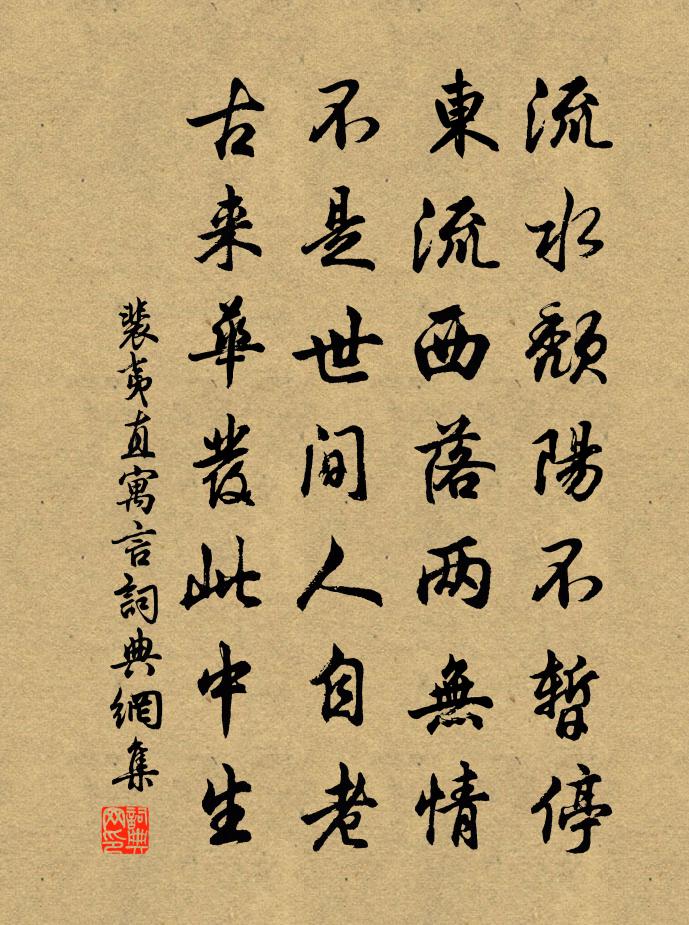 流水頹陽不暫停
東流西落两無情
不是世间人自老
古来華髮此中生
裴夷直寓言詞典網集
詞典网印